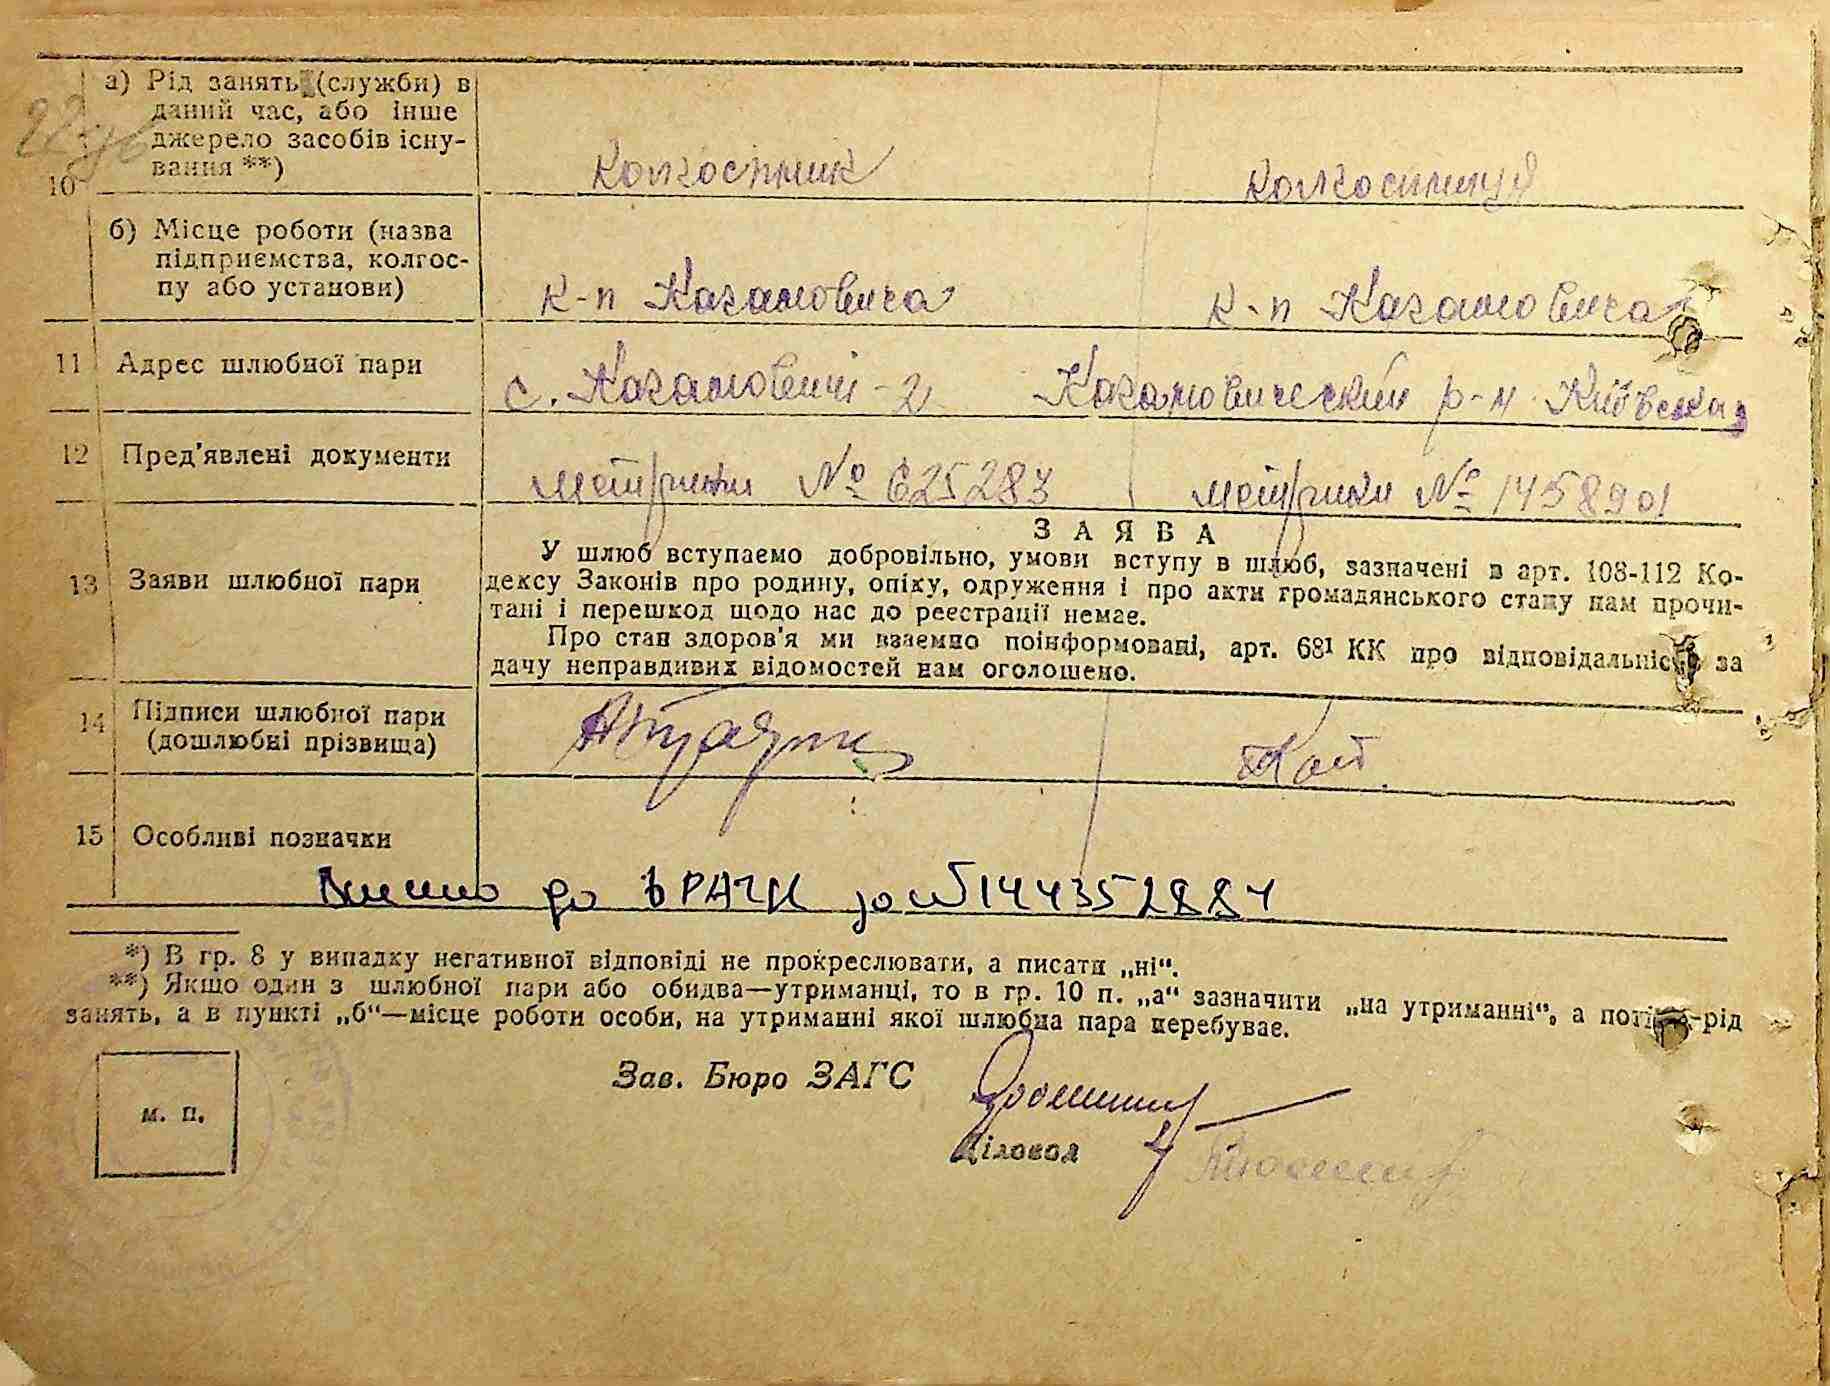 а) Рід занять (служби) в
даний час, або інше
джерело засобів існу-
вання **)
10
колхосник колхосниця
б) Місце роботи (назва
підприємства, колгос-
пу або установи)
к-п Кагановича к-п Кагановича
11 Адрес шлюбної пари
с. Кагановичі-2 Кагановический р-н Київська
12 Пред'явлені документи
метрики № 625283 метрики № 145890
13 Заяви шлюбної пари
ЗАЯВА
У шлюб вступаємо добровільно, умови вступу в шлюб, зазначені в арт. 108-112 Ко-
дексу Законів про родину, опіку, одруження і про акти громадянського стану нам прочи-
тані і перешкод щодо нас до реєстрації немає.
Про стан здоров'я ми взаємно поінформовані, арт. 68¹ КК про відповідальність за
дачу неправдивих відомостей нам оголошено.
14 Підписи шлюбної пари
(дошлюбні прізвища)
15 Особливі позначки
до ДРАЦС за № 14435288
*) В гр. 8 у випадку негативної відповіді не прокреслювати, а писати „ні“.
**) Якщо один з шлюбної пари або обидва—утриманці, то в гр. 10 п. „а“ зазначити „на утриманні“, а потім—рід
занять, а в пункті „б“—місце роботи особи, на утриманні якої шлюбна пара перебуває.
Зав. Бюро ЗАГС
Діловод
м. п.